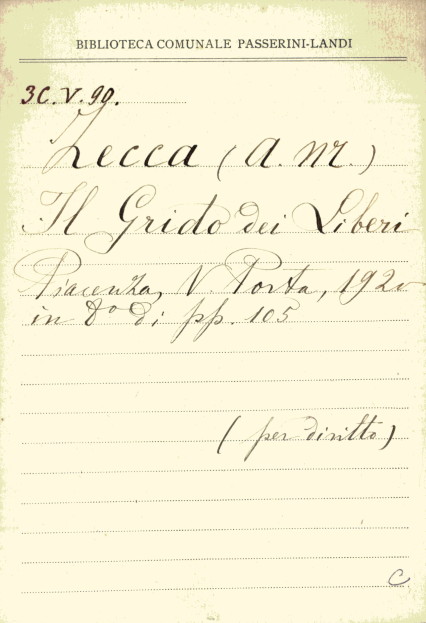 BIBLIOTECA COMUNALE PASSERINI-LANDI
3C.V.90.
Zecca (A. M.)
Il Grido dei Liberi
Piacenza, V. Porta, 1920
in 8º di pp. 105
(per diritto)
C